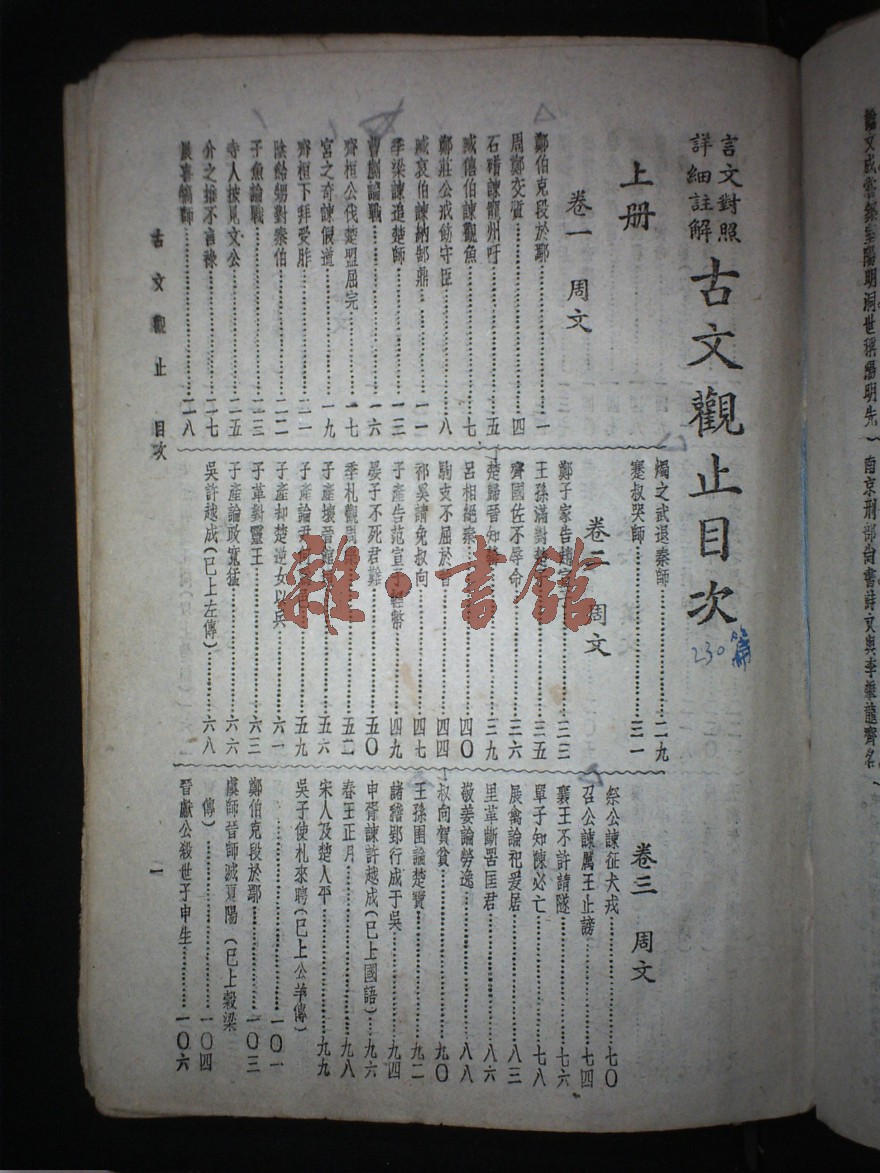 言文對照
詳細註解
古文觀止目次
230篇
上册
卷一 周文
鄭伯克段於鄢……一
周鄭交質……四
石碏諫寵州吁……五
臧僖伯諫觀魚……七
鄭莊公戒飭守臣……八
臧哀伯諫納郜鼎……一一
季梁諫追楚師……一三
曹劌論戰……一六
齊桓公伐楚盟屈完……一七
宮之奇諫假道……一九
齊桓下拜受胙……二一
陰飴甥對秦伯……二二
子魚論戰……二三
寺人披見文公……二五
介之推不言祿……二七
展喜犒師……二八
燭之武退秦師……二九
蹇叔哭師……三一
卷二 周文
鄭子家告趙宣子……三三
王孫滿對楚子……三五
齊國佐不辱命……三六
楚歸晉知罃……三九
呂相絕秦……四〇
駒支不屈於晉……四四
祁奚請免叔向……四七
子產告范宣子輕幣……四九
晏子不死君難……五〇
季札觀周樂……五二
子產壞晉館垣……五六
子產論尹何……五九
子產却楚逆女以兵……六一
子革對靈王……六三
子產論政寬猛……六六
吳許越成(已上左傳)……六八
卷三 周文
祭公諫征犬戎……七〇
召公諫厲王止謗……七四
襄王不許請隧……七六
單子知陳必亡……七八
展禽論祀爰居……八三
里革斷罟匡君……八六
敬姜論勞逸……八八
叔向賀貧……九〇
王孫圉論楚寶……九二
諸稽郢行成于吳……九四
申胥諫許越成(已上國語)……九六
春王正月……九八
宋人及楚人平……九九
吳子使札來聘(已上公羊傳)
……一〇一
鄭伯克段於鄢……一〇三
虞師晉師滅夏陽(已上穀梁
傳)……一〇四
晉獻公殺世子申生……一〇六
古文觀止 目次
一
雜·書館
南京刑部尚書詩文與李攀龍齊名